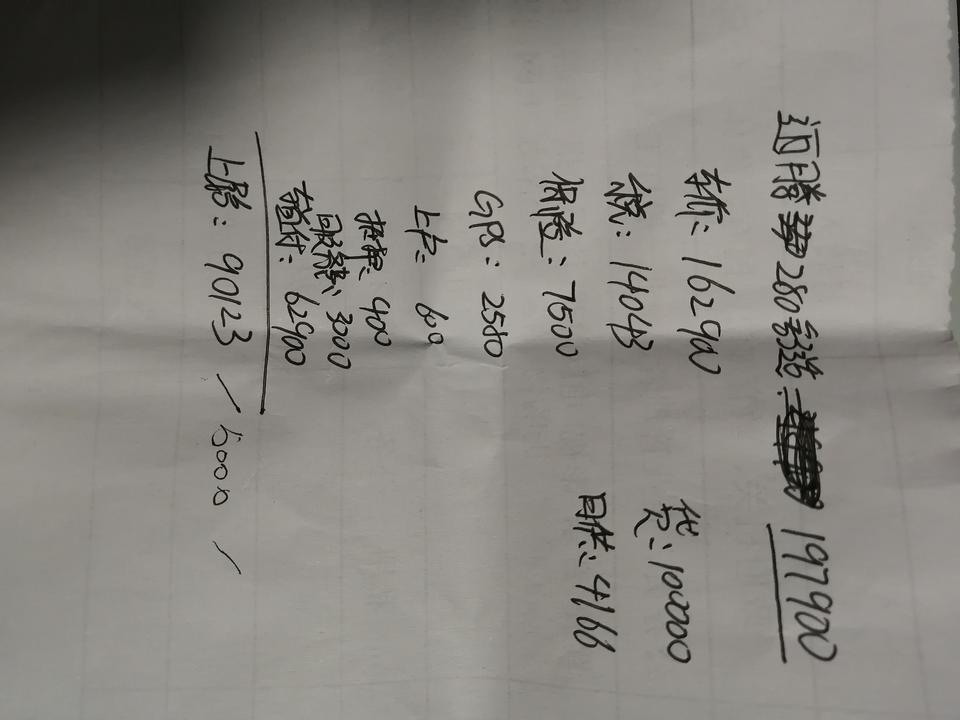 迈腾 280舒适: 197900
车价: 162900
税: 14043
保险: 7500
GPS: 2580
上户: 600
拓押: 400
服务费: 3000
首付: 62900
上路: 90123 / 6000 /
贷: 100000
月供: 4166